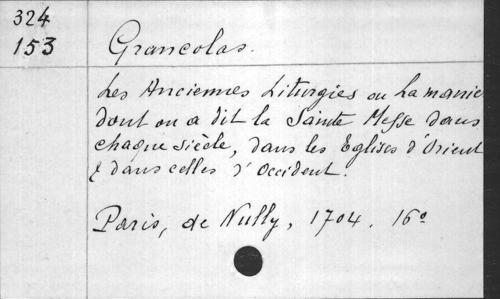 324
153
Grancolas.
Les Anciennes Liturgies ou La manie
dont on a dit la Sainte Messe dans
chaque siècle, dans les Eglises d'Orient
& dans celles d'Occident.
Paris, de Nully, 1704. 16º